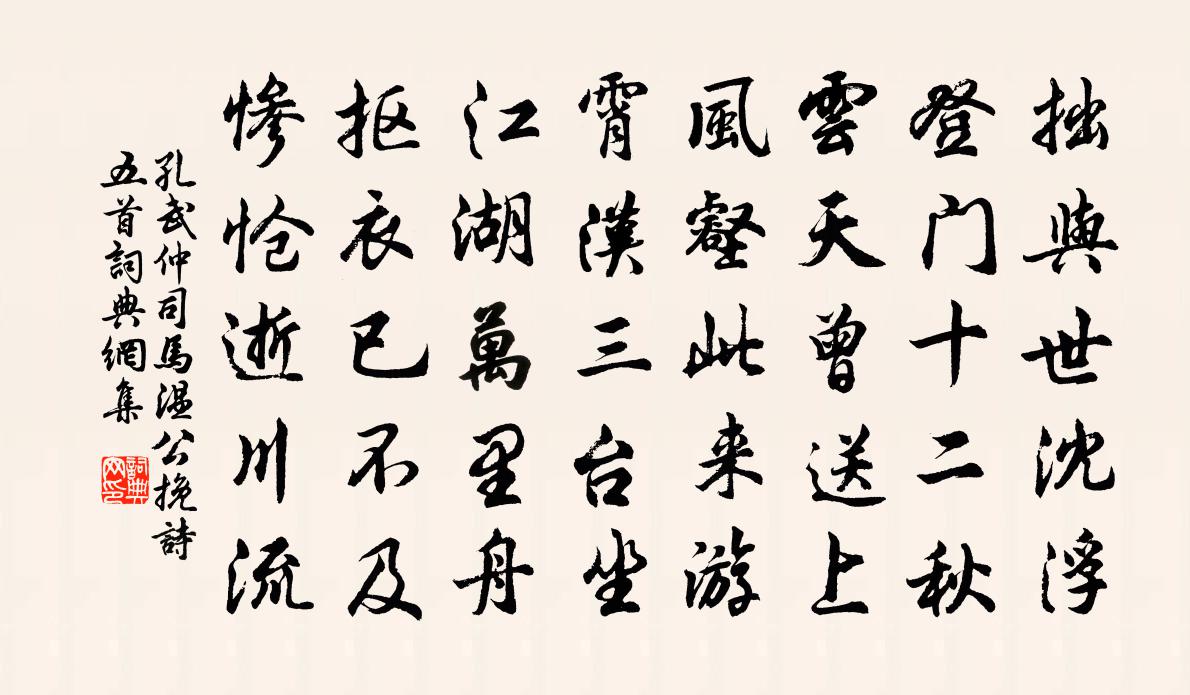 拙與世沈浮
登门十二秋
雲天曾送上
風壑此来游
霄漢三台坐
江湖萬里舟
抠衣已不及
惨怆逝川流
孔武仲司馬温公挽詩
五首詞典網集
詞典网印